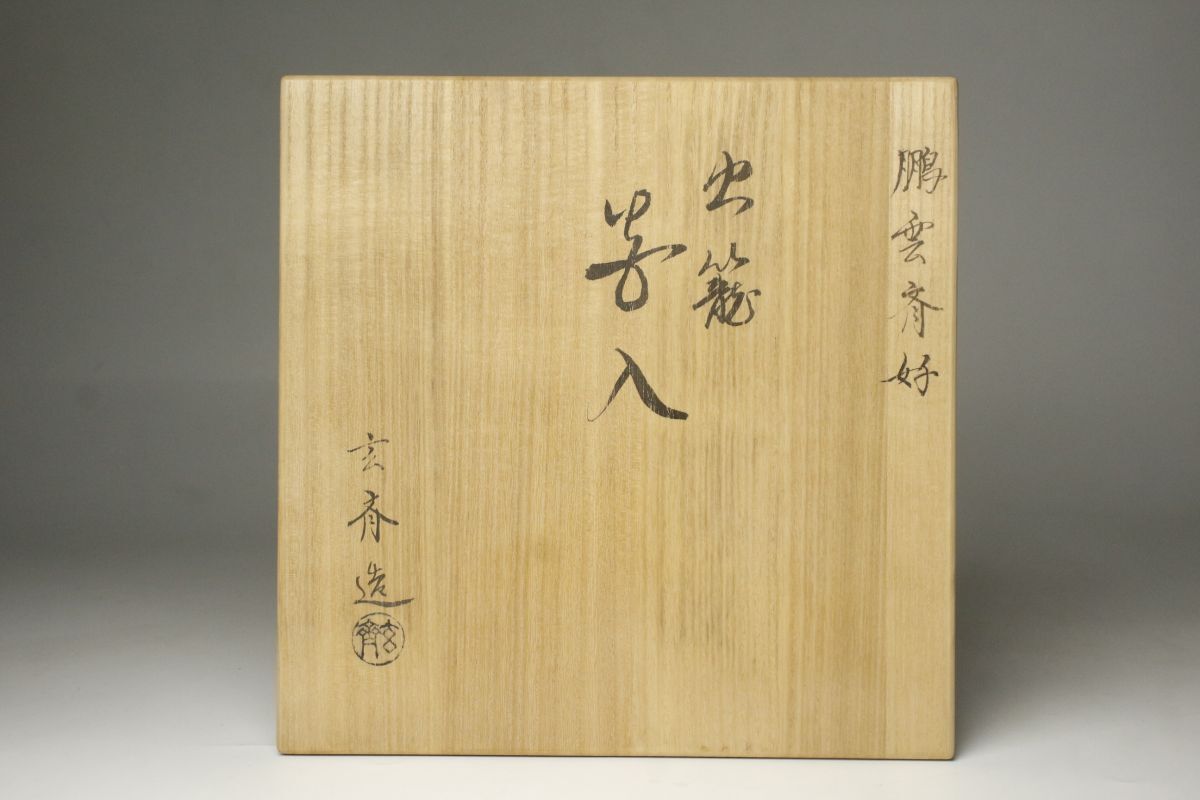 鵬雲斎好
虫籠
入
玄斎造
玄斎